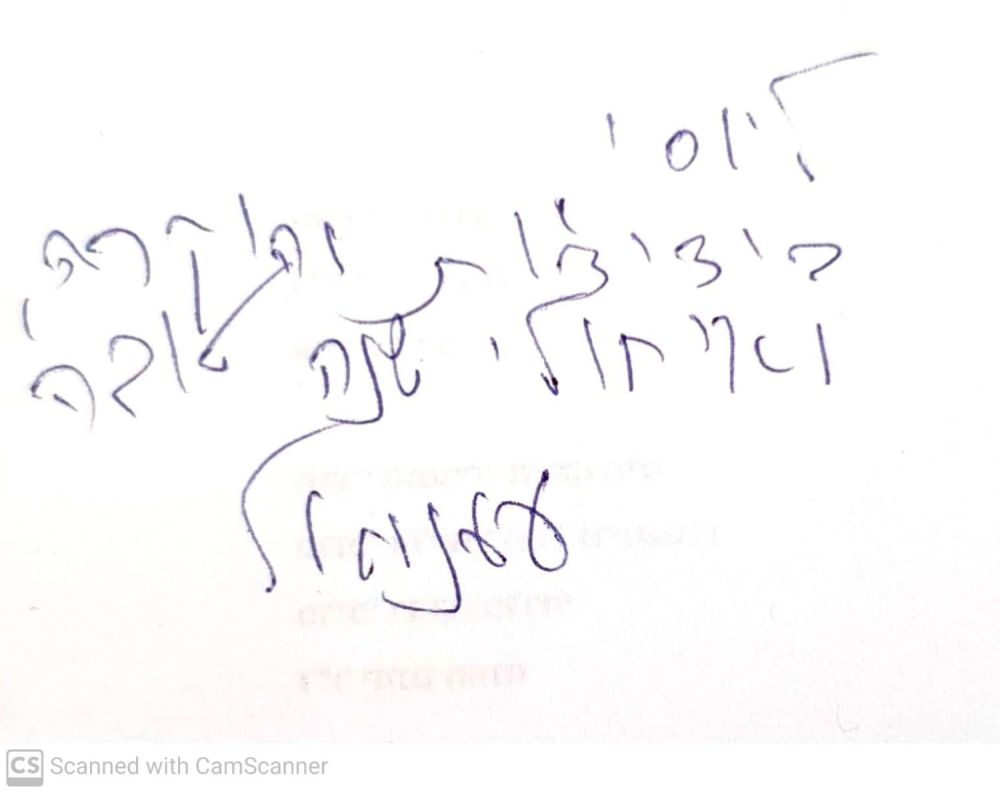 ליוסי
בידידות והוקרה,
ואיחולי שנה טובה
עמנואל
CS Scanned with CamScanner